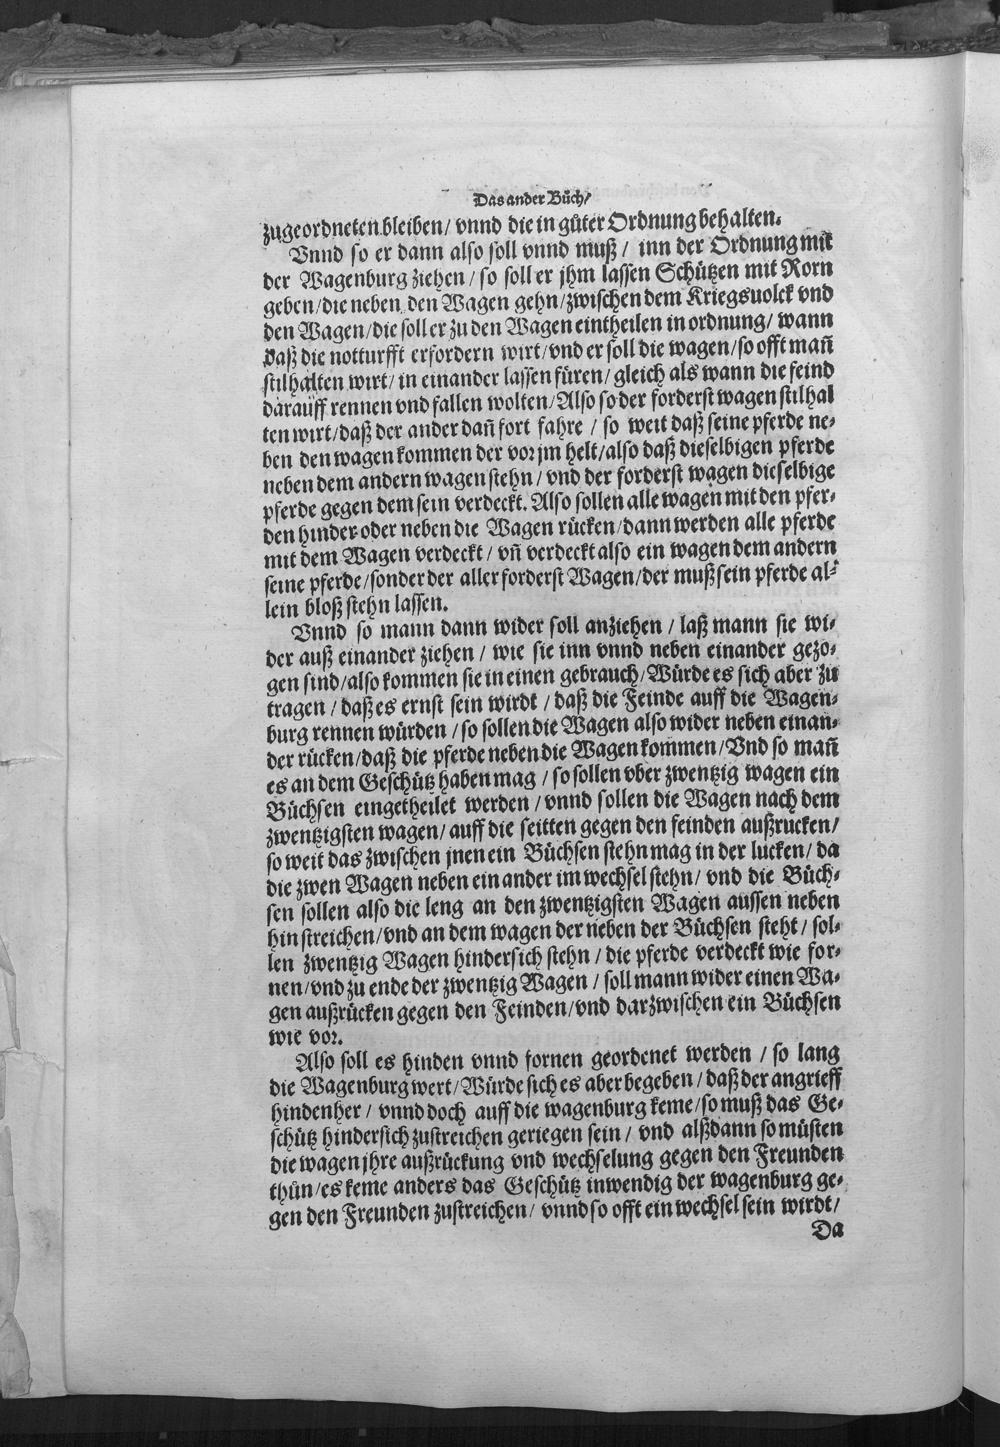 Das ander Bůch/
zugeordneten bleiben/ vnnd die in gůter Ordnung behalten.
Vnnd so er dann also soll vnnd muß / inn der Ordnung mit
der Wagenburg ziehen / so soll er jhm lassen Schützen mit Rorn
geben/die neben den Wagen gehn/zwischen dem Kriegsuolck vnd
den Wagen/die soll er zu den Wagen eintheilen in ordnung/ wann
daß die notturfft erfordern wirt/vnd er soll die wagen/so offt mañ
stilhalten wirt/ in einander lassen füren/ gleich als wann die feind
darauff rennen vnd fallen wolten/Also so der forderst wagen stilhal
ten wirt/daß der ander dañ fort fahre / so weit daß seine pferde ne-
ben den wagen kommen der vor jm helt/also daß dieselbigen pferde
neben dem andern wagen stehn / vnd der forderst wagen dieselbige
pferde gegen dem sein verdeckt. Also sollen alle wagen mit den pfer-
den hinder oder neben die Wagen rücken/dann werden alle pferde
mit dem Wagen verdeckt / vñ verdeckt also ein wagen dem andern
seine pferde/sonder der aller forderst Wagen/der muß sein pferde al-
lein bloß stehn lassen.
Vnnd so mann dann wider soll anziehen / laß mann sie wi-
der auß einander ziehen / wie sie inn vnnd neben einander gezo-
gen sind/also kommen sie in einen gebrauch/Würde es sich aber zu
tragen / daß es ernst sein wirdt / daß die Feinde auff die Wagen-
burg rennen würden / so sollen die Wagen also wider neben einan-
der rücken/daß die pferde neben die Wagen kommen/Vnd so mañ
es an dem Geschütz haben mag / so sollen vber zwentzig wagen ein
Büchsen eingetheilet werden / vnnd sollen die Wagen nach dem
zwentzigsten wagen/ auff die seitten gegen den feinden außrucken/
so weit das zwischen jnen ein Büchsen stehn mag in der lucken/ da
die zwen Wagen neben einander im wechsel stehn/ vnd die Büch-
sen sollen also die leng an den zwentzigsten Wagen aussen neben
hin streichen/vnd an dem wagen der neben der Büchsen steht / sol-
len zwentzig Wagen hindersich stehn / die pferde verdeckt wie for-
nen/vnd zu ende der zwentzig Wagen / soll mann wider einen Wa-
gen außrücken gegen den Feinden/vnd darzwischen ein Büchsen
wie vor.
Also soll es hinden vnnd fornen geordenet werden / so lang
die Wagenburg wert/Würde sich es aber begeben/ daß der angrieff
hindenher / vnnd doch auff die wagenburg keme/so muß das Ge-
schütz hindersich zustreichen geriegen sein / vnd alßdann so müsten
die wagen jhre außrückung vnd wechselung gegen den Freunden
thůn/es keme anders das Geschütz inwendig der wagenburg ge-
gen den Freunden zustreichen/ vnnd so offt ein wechsel sein wirdt/
Da